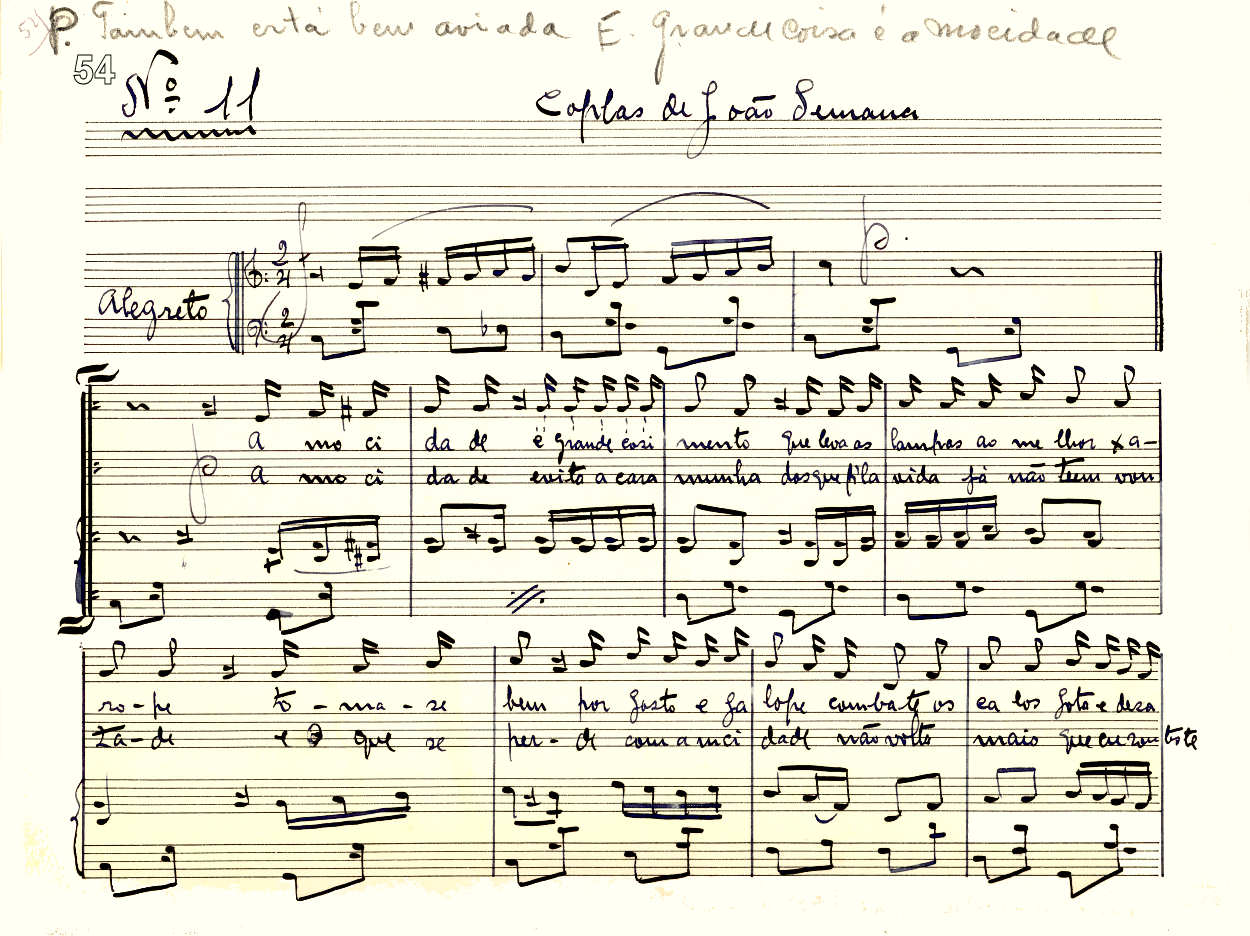 P. Tambem está bem aviada E. Grande coisa é a mocidade
54
Nº 11
Coplas de João Semana
Alegreto
A mo ci da de é grande cozi mento que leva as lampas ao me lhor xa-
A mo ci da de evita a cara munha dos que p'la vida já não teem von
ro-pe to-ma-se bem por gosto e ga lope combate os ca los gota e
ta-de e que se per-de com a mci dade não volta mais que eu